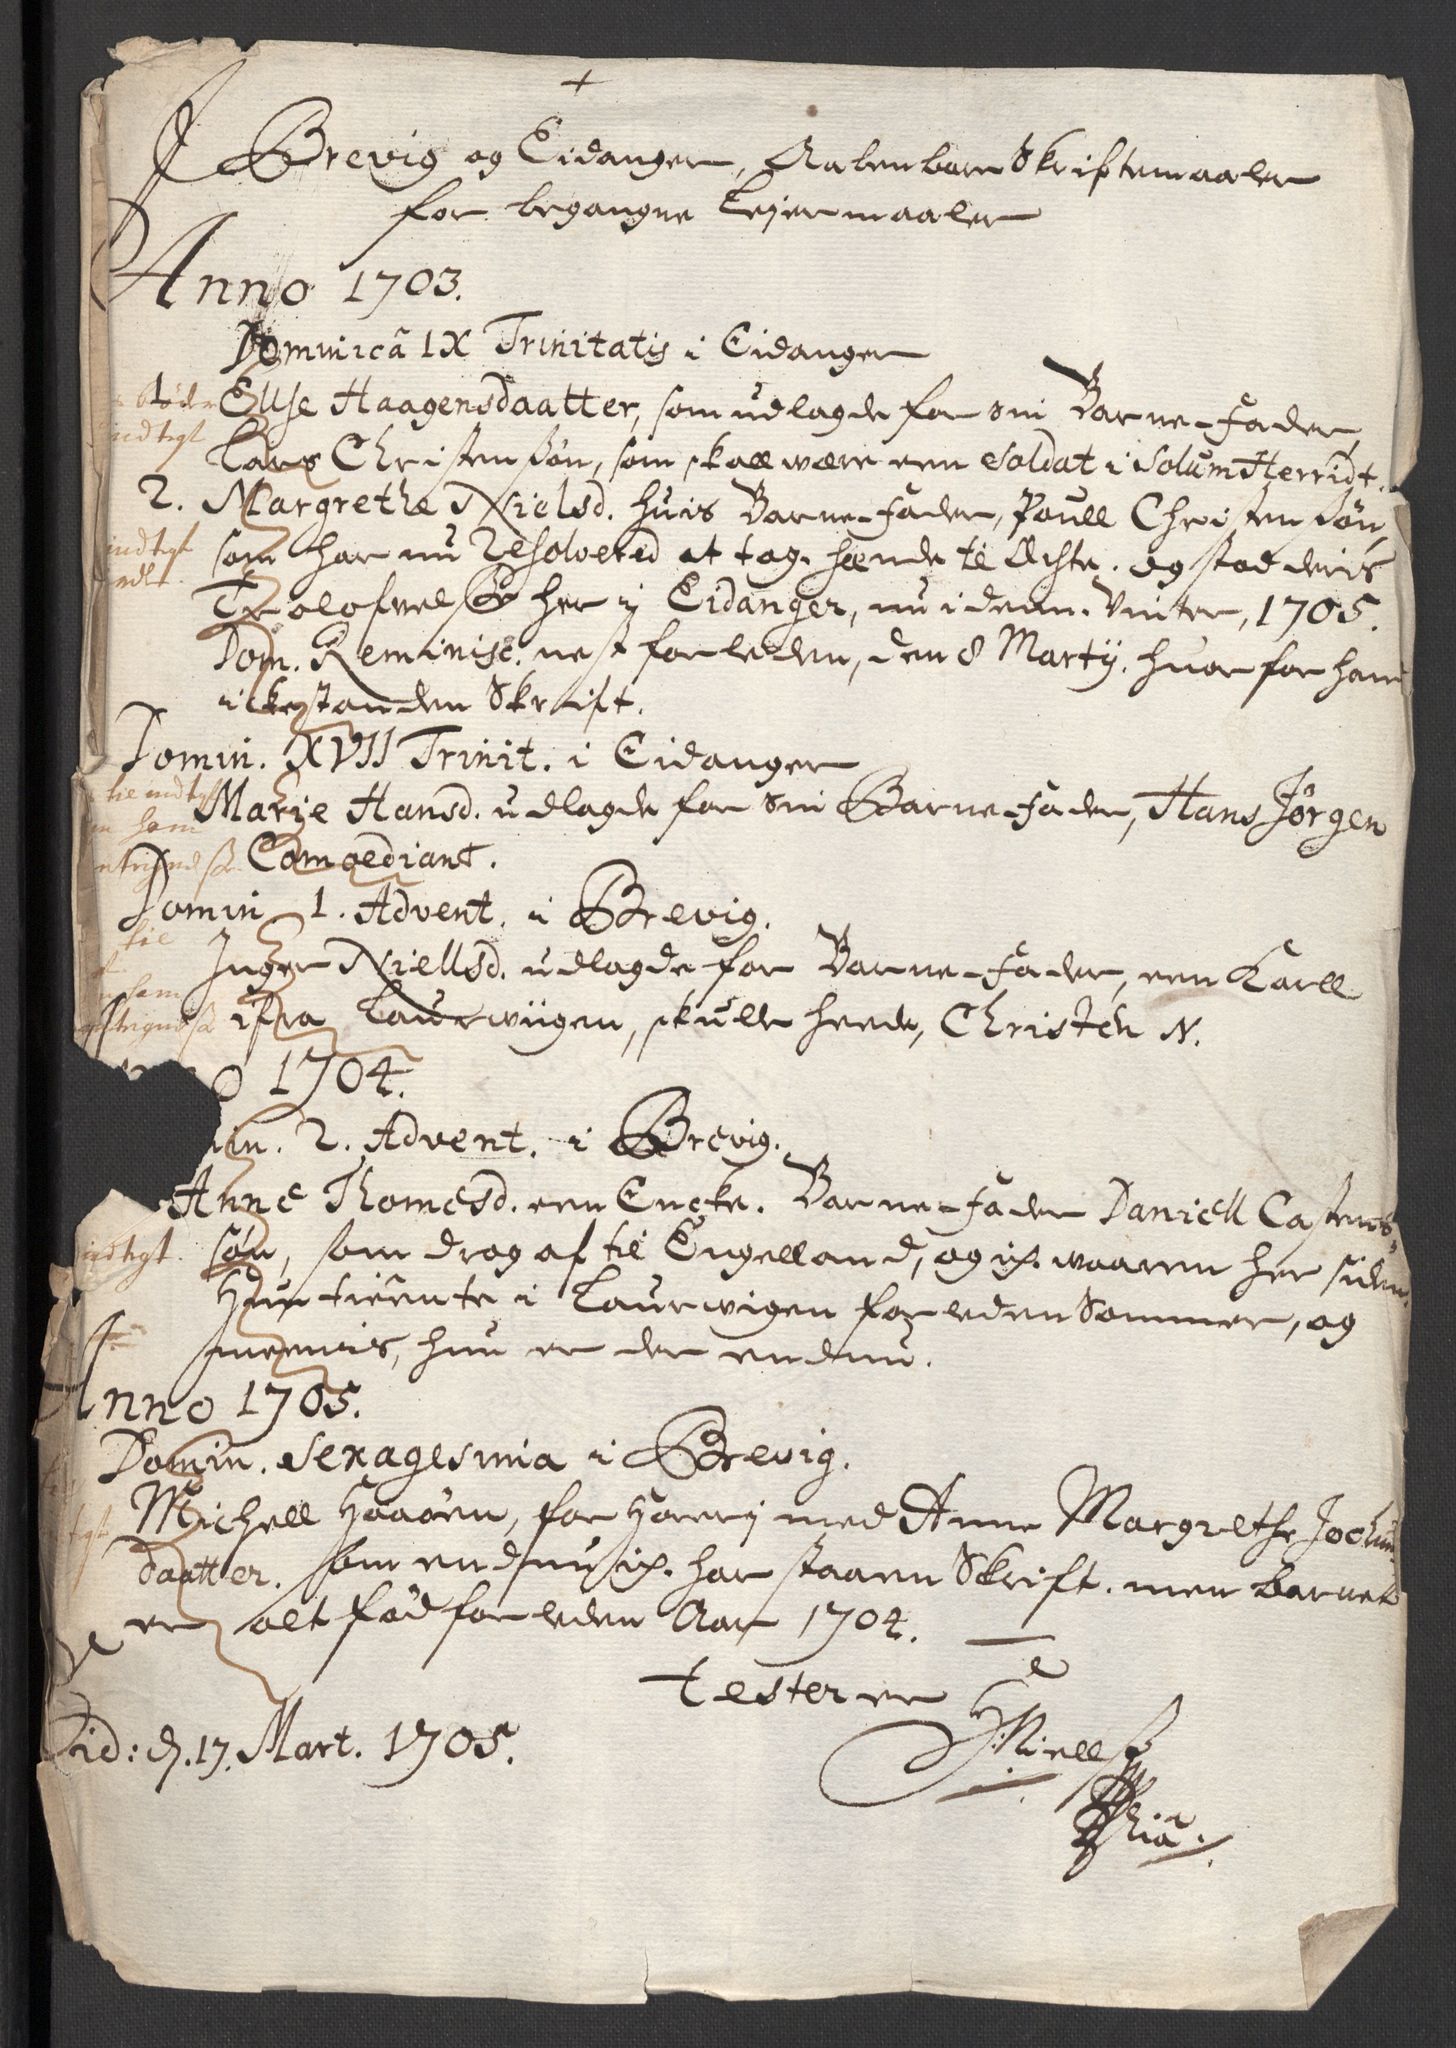 I Brevig og Eidanger, Aabenbare Skriftemaaler
for begangne Lejermaaler
Anno 1703.
Dominicâ IX Trinitatis i Eidanger
1. Ellse Haagensdaatter, som udlagde for sin Barne-Fader,
Lars Christensøn, som skall være een Soldat i Solum Herridt.
2. Margrethe Nielsd. huis Barne-Fader, Poull Christensøn,
som har nu Resolvered at tage hænde til Echte. og stod deris
Trolofvelse her ij Eidanger, nu i denne Vinter, 1705.
Dom. Reminisc. nest forleden, den 8 Martij. huorfor hand
icke standen Skrift.
Domin. XVII Trinit. i Eidanger
Marie Hansd. udlagde for sin Barne-Fader, Hans Jørgen
Comoediant.
Domin 1. Advent. i Brevig.
Inger Niellsd. udlagde for Barne-Fader, een Karll
ifra Laurwiigen, skulle heede, Christen N.
o 1704.
in. 2. Advent. i Brevig.
Anne Thomesd. een Encke. Barne-Fader Daniell Castens-
søn, som drog af til Engelland, og ix. waaren her siden.
Hun tiente i Laurwigen forleden Sommer, og
meenis, hun er der endnu.
Anno 1705.
Domin. Sexagesima i Brevig.
Michell Haaøen, for Horerij med Anne Margrethe Jochum-
daatter. som endnu ix. har staaen Skrift. men barnet
er alt fød forleden Aar 1704.
testerer
Eid: d. 17. Mart. 1705.
H. Niells